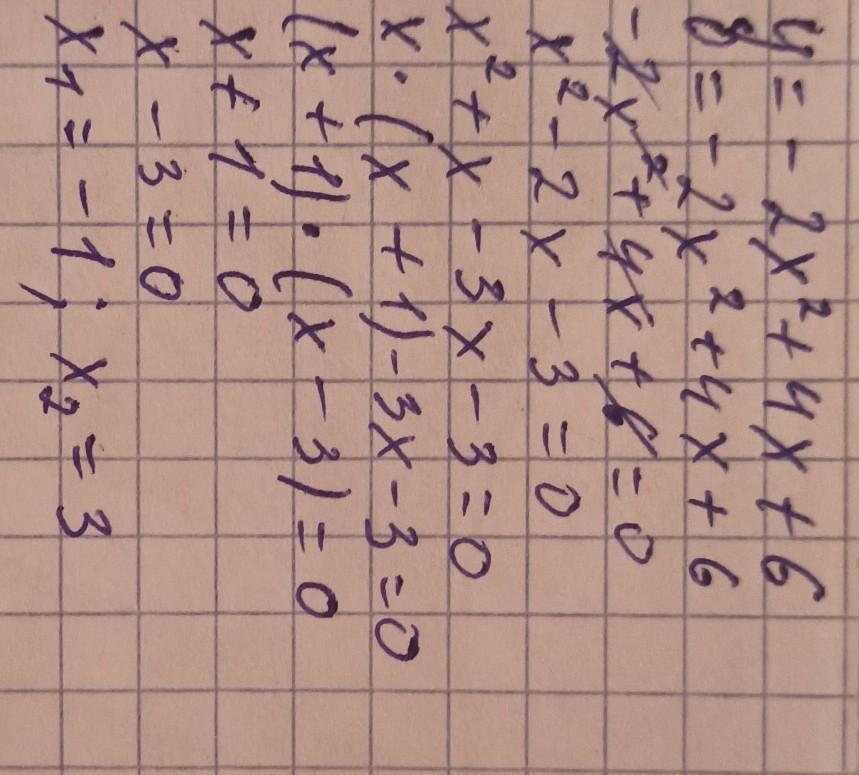 y = -2x² + 4x + 6
0 = -2x² + 4x + 6
-2x² + 4x + 6 = 0
x² - 2x - 3 = 0
x² + x - 3x - 3 = 0
x · (x + 1) - 3x - 3 = 0
(x + 1) · (x - 3) = 0
x + 1 = 0
x - 3 = 0
x₁ = -1; x₂ = 3